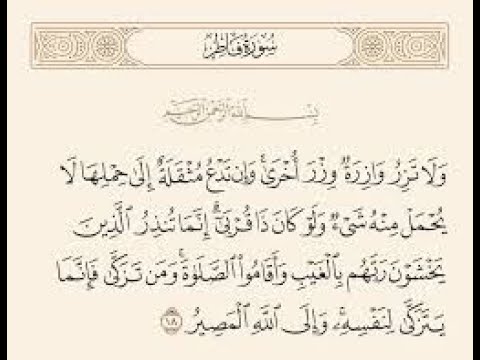 سُورَةُ فَاطِرٍ
بِسْمِ اللَّهِ الرَّحْمَٰنِ الرَّحِيمِ
وَلَا تَزِرُ وَازِرَةٌ وِزْرَ أُخْرَىٰ ۚ وَإِن تَدْعُ مُثْقَلَةٌ إِلَىٰ حِمْلِهَا لَا
يُحْمَلْ مِنْهُ شَيْءٌ وَلَوْ كَانَ ذَا قُرْبَىٰ ۗ إِنَّمَا تُنذِرُ الَّذِينَ
يَخْشَوْنَ رَبَّهُم بِالْغَيْبِ وَأَقَامُوا الصَّلَوٰةَ ۚ وَمَن تَزَكَّىٰ فَإِنَّمَا
يَتَزَكَّىٰ لِنَفْسِهِ ۚ وَإِلَى اللَّهِ الْمَصِيرُ ١٨